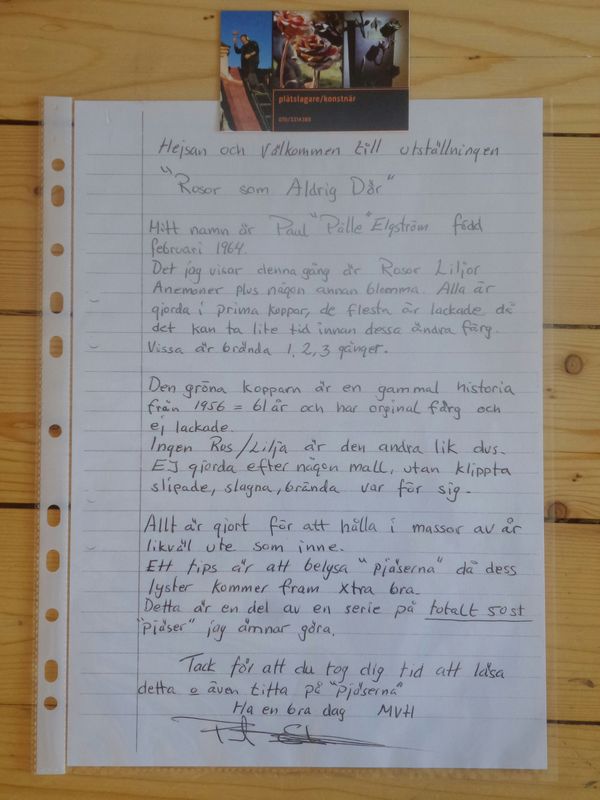 plåtslagare/konstnär
Hejsan och Välkommen till utställningen
"Rosor som Aldrig Dör"
Mitt namn är Paul "Pålle" Elgström född
februari 1964.
Det jag visar denna gång är Rosor Liljor
Anemoner plus någon annan blomma. Alla är
gjorda i prima koppar, de flesta är lackade då
det kan ta lite tid innan dessa ändra färg.
Vissa är brända 1, 2, 3 gånger.
Den gröna kopparn är en gammal historia
från 1956 = 61 år och har orginal färg och
ej lackade.
Ingen Ros/Lilja är den andra lik dvs.
EJ gjorda efter någon mall, utan klippta
slipade, slagna, brända var för sig.
Allt är gjort för att hålla i massor av år
likväl ute som inne.
Ett tips är att belysa "pjäserna" då dess
lyster kommer fram xtra bra.
Detta är en del av en serie på totalt 50 st
"pjäser" jag ämnar göra.
Tack för att du tog dig tid att läsa
detta o även titta på "pjäserna"
Ha en bra dag MVH